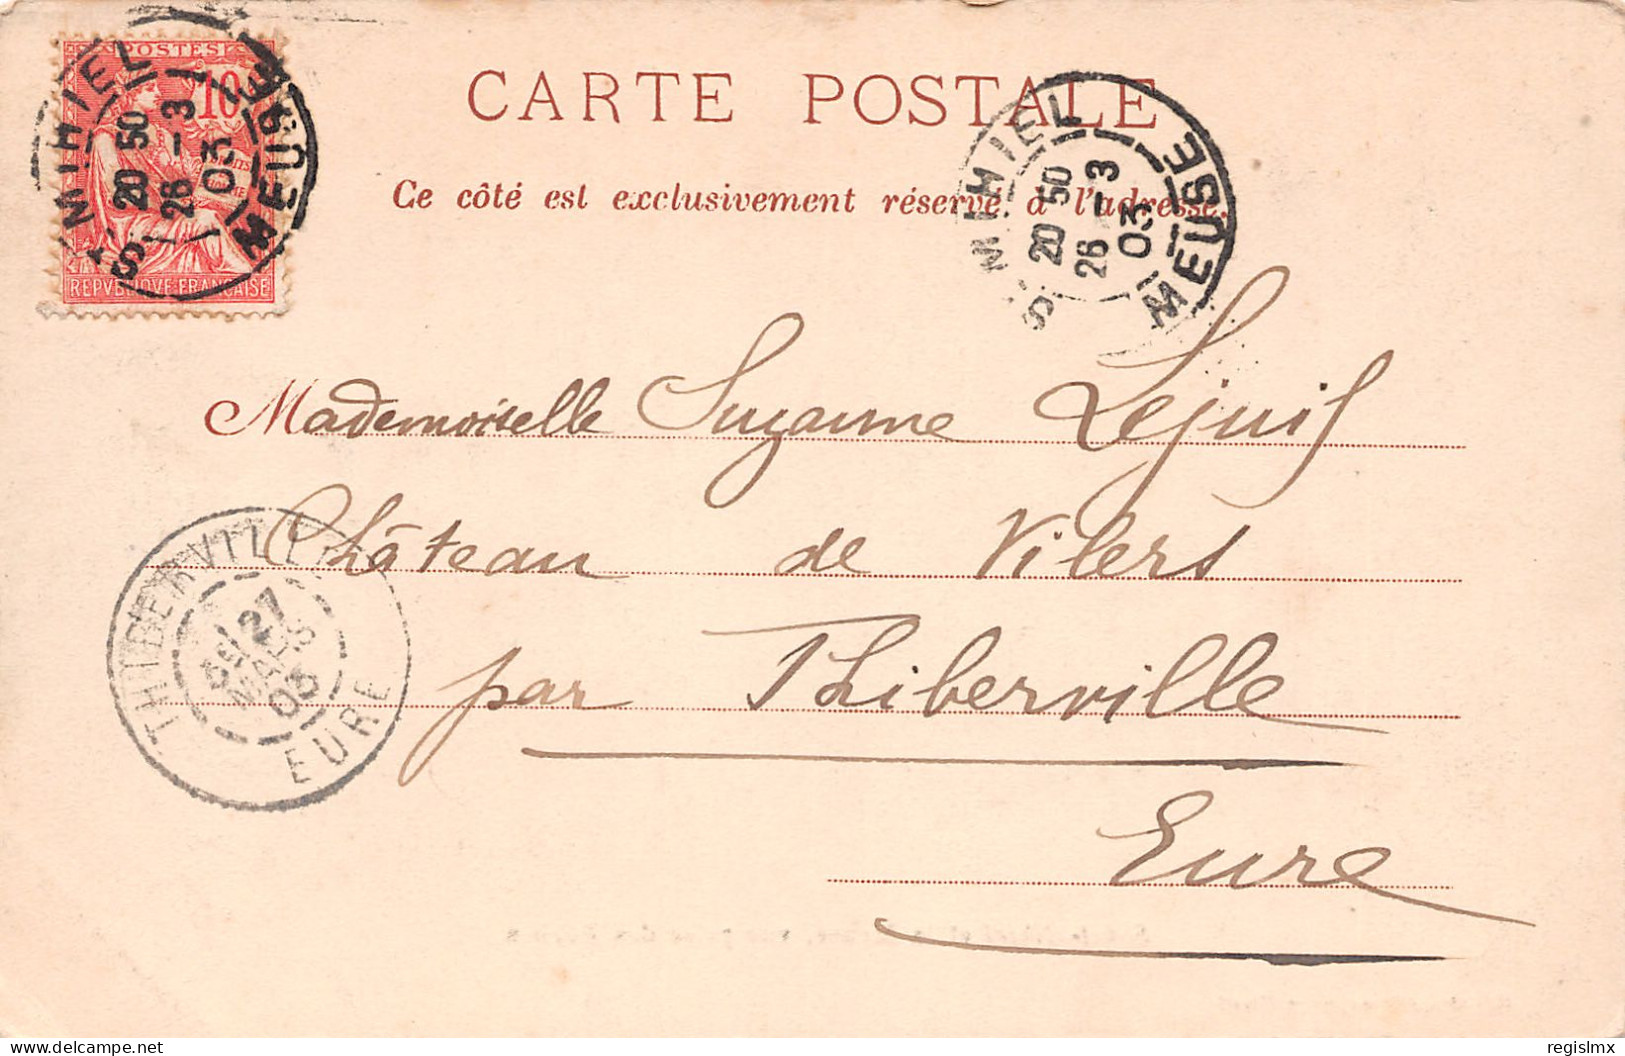 POSTES
10
REPVBLIQVE FRANÇAISE
ST MIHIEL
20 50
26 - 3
03
MEUSE
CARTE POSTALE
Ce côté est exclusivement réservé à l'adresse.
ST MIHIEL
20 50
26 - 3
03
MEUSE
Mademoiselle Suzanne Lejuif
Château de Vilers
par Thiberville
Eure
THIBERVILLE
27
MARS
03
EURE
regislmx